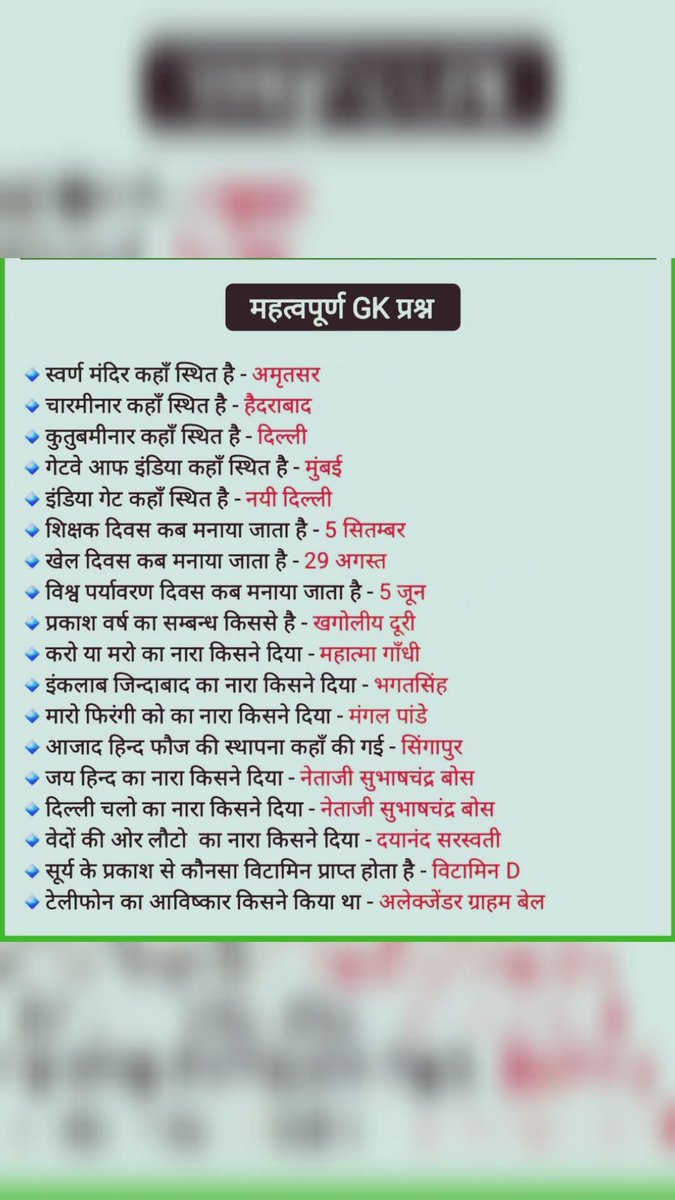 महत्वपूर्ण GK प्रश्न
स्वर्ण मंदिर कहाँ स्थित है - अमृतसर
चारमीनार कहाँ स्थित है - हैदराबाद
कुतुबमीनार कहाँ स्थित है - दिल्ली
गेटवे आफ इंडिया कहाँ स्थित है - मुंबई
इंडिया गेट कहाँ स्थित है - नयी दिल्ली
शिक्षक दिवस कब मनाया जाता है - 5 सितम्बर
खेल दिवस कब मनाया जाता है - 29 अगस्त
विश्व पर्यावरण दिवस कब मनाया जाता है - 5 जून
प्रकाश वर्ष का सम्बन्ध किससे है - खगोलीय दूरी
करो या मरो का नारा किसने दिया - महात्मा गाँधी
इंकलाब जिन्दाबाद का नारा किसने दिया - भगतसिंह
मारो फिरंगी को का नारा किसने दिया - मंगल पांडे
आजाद हिन्द फौज की स्थापना कहाँ की गई - सिंगापुर
जय हिन्द का नारा किसने दिया - नेताजी सुभाषचंद्र बोस
दिल्ली चलो का नारा किसने दिया - नेताजी सुभाषचंद्र बोस
वेदों की ओर लौटो का नारा किसने दिया - दयानंद सरस्वती
सूर्य के प्रकाश से कौनसा विटामिन प्राप्त होता है - विटामिन D
टेलीफोन का आविष्कार किसने किया था - अलेक्जेंडर ग्राहम बेल